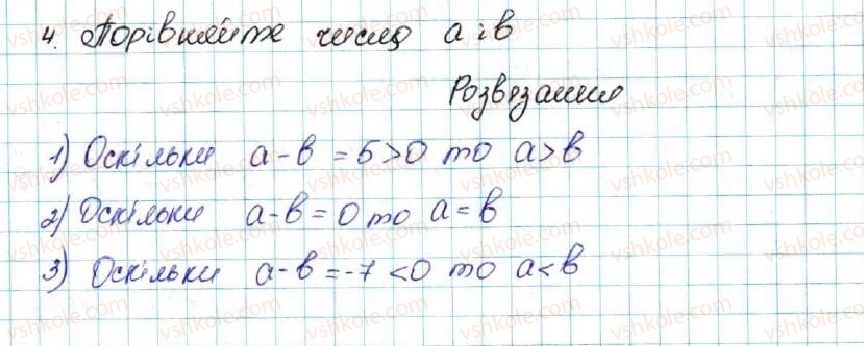 4. Порівняйте числа a і b
Розвязання
1) Оскільки a - b = 5 > 0 то a > b
2) Оскільки a - b = 0 то a = b
3) Оскільки a - b = -7 < 0 то a < b
vshkole.com